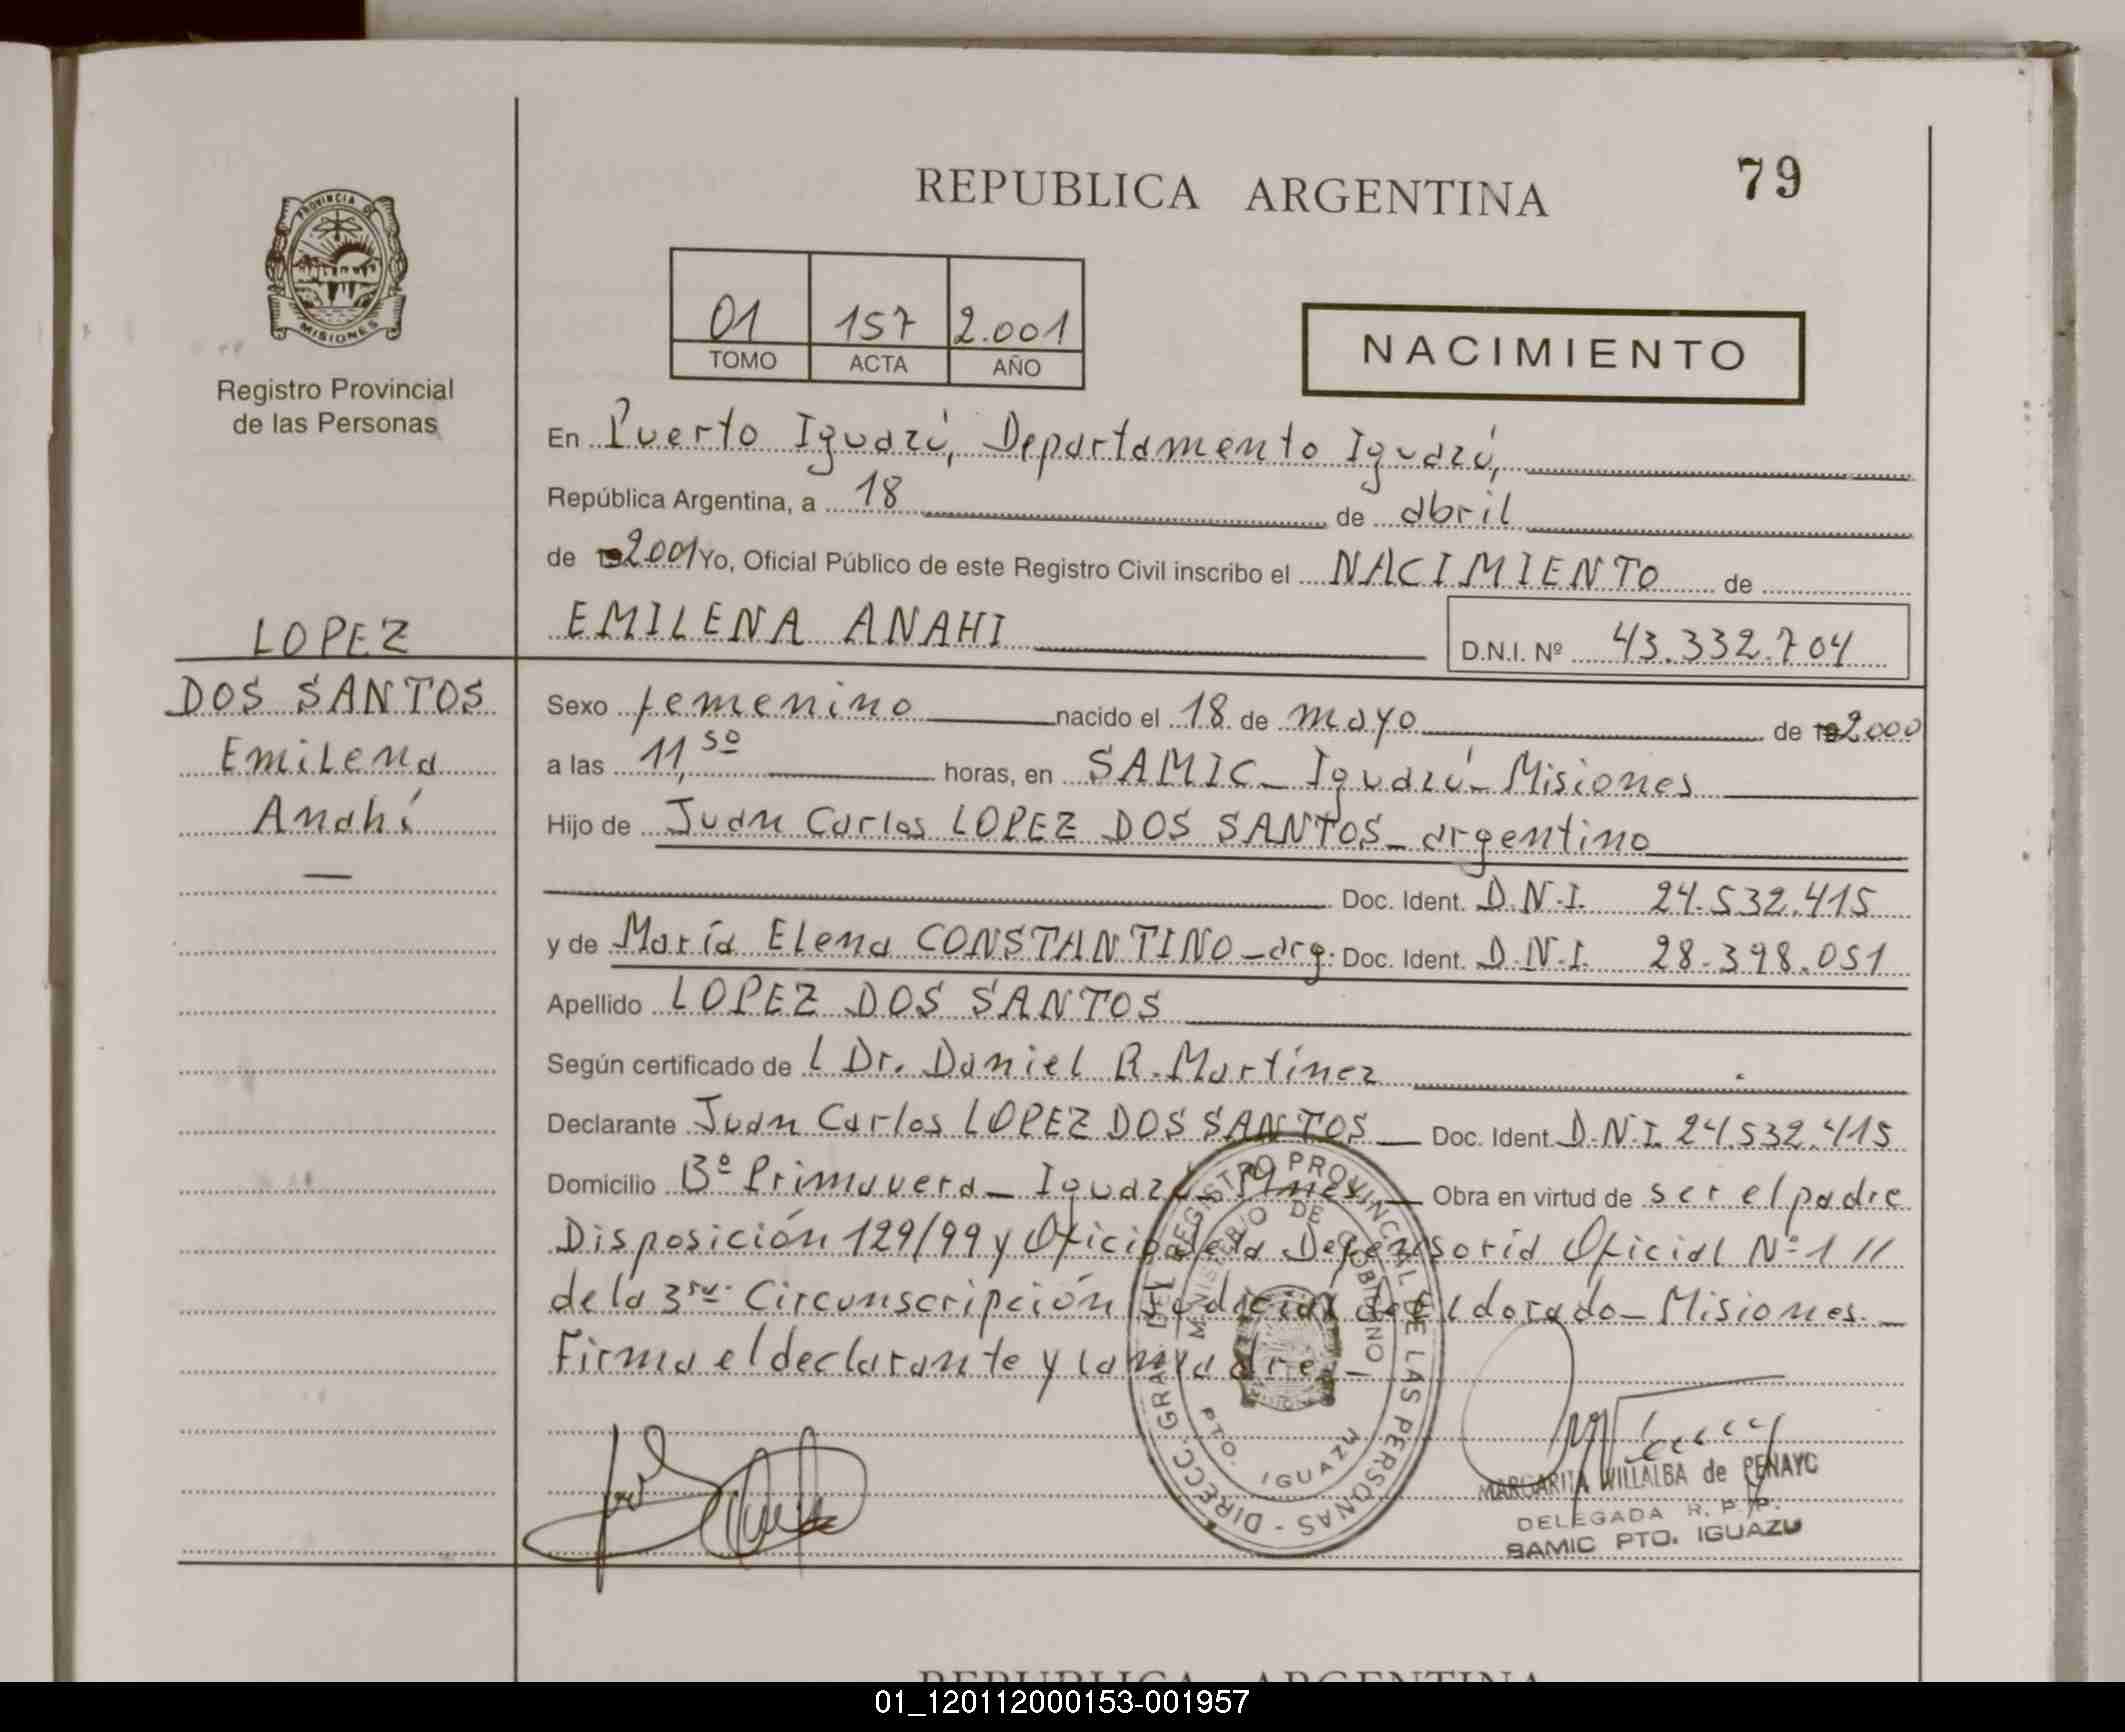 79
REPUBLICA ARGENTINA
PROVINCIA DE
MISIONES
Registro Provincial
de las Personas
01 157 2.001
TOMO ACTA AÑO
NACIMIENTO
En Puerto Iguazú, Departamento Iguazú,
República Argentina, a 18 de abril
de 2001 Yo, Oficial Público de este Registro Civil inscribo el NACIMIENTO de
EMILENA ANAHI
D.N.I. Nº 43.332.704
LOPEZ
DOS SANTOS
Emilena
Anahí
—
Sexo femenino nacido el 18 de mayo de 2000
a las 11,50 horas, en SAMIC_ Iguazú_ Misiones
Hijo de Juan Carlos LOPEZ DOS SANTOS_ argentino
Doc. Ident. D.N.I. 24.532.415
y de María Elena CONSTANTINO_arg. Doc. Ident. D.N.I. 28.398.051
Apellido LOPEZ DOS SANTOS
Según certificado de l Dr. Daniel R. Martínez
Declarante Juan Carlos LOPEZ DOS SANTOS Doc. Ident. D.N.I. 24.532.415
Domicilio Bº Primavera_ Iguazú_ Mnes. Obra en virtud de ser el padre
Disposición 129/99 y Oficio de la Defensoría Oficial Nº 1 //
de la 3ra. Circunscripción Judicial de Eldorado_ Misiones._
Firma el declarante y la madre.
DIRECC. GRAL. DEL REGISTRO PROVINCIAL DE LAS PERSONAS -
MINISTERIO DE GOBIERNO
PTO. IGUAZU
MARGARITA VILLALBA de PENAYO
DELEGADA R. P. P.
SAMIC PTO. IGUAZU
REPUBLICA ARGENTINA
01_120112000153-001957